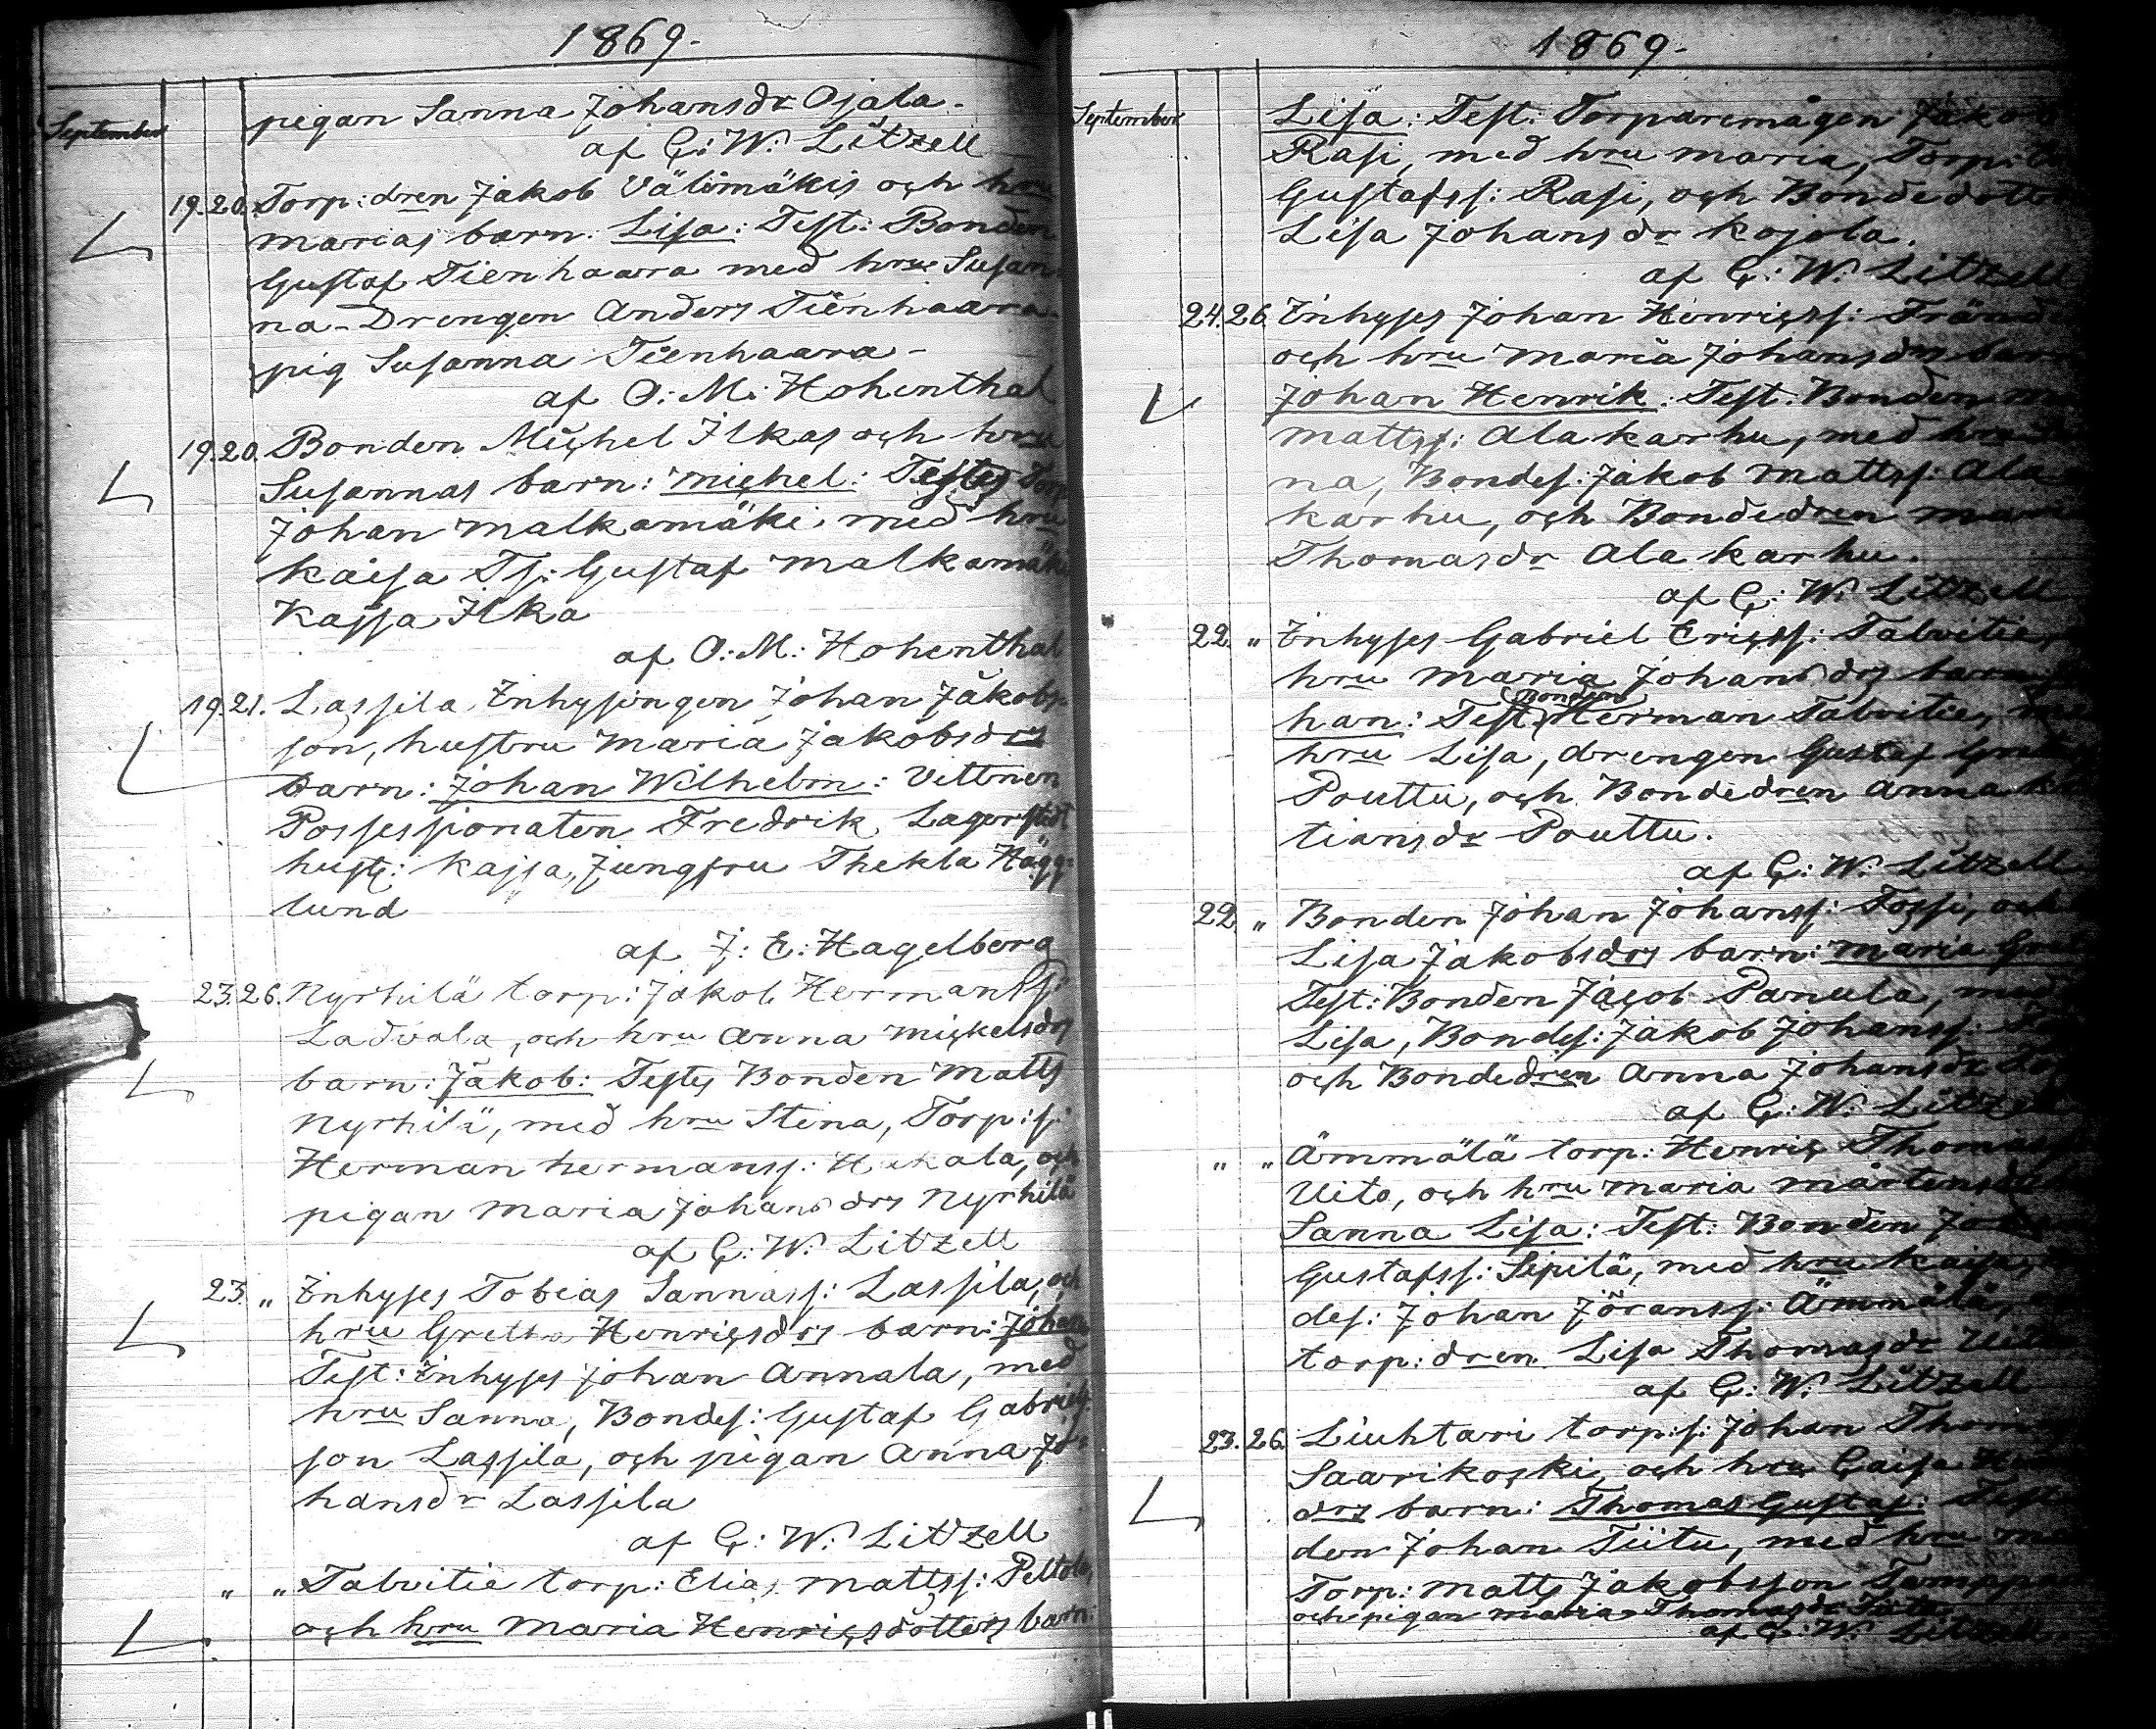 1869.
September
pigan Sanna Johansdr Ojala.
af G: W: Litzell
19. 20. Torp: dren Jakob Välimäkis och hru
marias barn: Lisa: Test: Bonden
Gustaf Tienhaara med hru Susan-
na - Drengen Anders Tienhaara.
pig Susanna Tienhaara -
af O: M: Hohenthal
19. 20. Bonden Michel Ilkas och hru
Susannas barn: Michel: Testes Torp
Johan Malkamäki med hru
Kaisa Ts: Gustaf Malkamäki
Kajsa Ilka
af O: M: Hohenthal
19. 21. Lassila Inhysingen Johan Jakobs-
son, hustru Maria Jakobsdrs
barn: Johan Wilhelm: Vittnen
Possessionaten Fredrik Lagerstedt
hust: Kajsa, Jungfru Thekla Hägg-
lund
af J: E: Hagelberg
23. 26. Nyrhilä torp: Jakob Hermanss:
Ladvala, och hru Anna Mickelsdrs
barn: Jakob: Testes Bonden Matts
Nyrhilä, med hru Stina, Torp: s:
Herman hermanss: och
pigan Maria Johansdrs Nyrhilä
af G: W: Litzell
23. " Inhyses Tobias Sannass: Lassila, och
hru Greta Henricsdrs barn: Johan
Test: Inhyses Johan Annala, med
hru Sanna, Bondes: Gustaf Gabriels-
son Lassila, och pigan Anna Jo-
hansdr Lassila
af G: W: Litzell
" " Talvitie torp: Elias Mattss: Peltola,
och hru Maria Henricsdotters barn:
1869.
September
Lisa: Test: Torparemågen Jakob
Rasi, med hru Maria, Torp:
Gustafss: Rasi, och Bondedotter
Lisa Johansdr Kojola.
af G: W: Litzell
24. 26. Inhyses Johan Henricss:
och hru Maria Johansdrs barn
Johan Henrik: Test: Bonden
Mattss: Ala karhu, med hru
na, Bondes: Jakob Mattss: Ala
karhu, och Bondedren
Thomasdr Ala karhu.
af G: W: Litzell
22. " Inhyses Gabriel Ericss: Talvitie,
hru Maria Johansdrs barn
(Bonden)
han: Test: Herman Talvitie,
hru Lisa, drengen Gustaf
Pouttu, och Bondedren Anna
tiansdr Pouttu.
af G: W: Litzell
22. " Bonden Johan Johanss: Fossi, och
Lisa Jakobsdrs barn: Maria
Test: Bonden Jacob Panula, med
Lisa, Bondes: Jakob Johanss:
och Bondedren Anna Johansdr
af G: W: Litzell
" " Ämmälä torp: Henric
Uito, och hru Maria Mårtensdrs
Sanna Lisa: Test: Bonden
Gustafss: Sipilä, med hru Kaisa,
des: Johan Jöranss: Ämmälä,
torp: dren Lisa Thomasdr Uito
af G: W: Litzell
23. 26. Liuhtari torp: s: Johan
Saarikoski, och hru Caisa
drs barn: Thomas Gustaf: Test
den Johan Tiitu, med hru
Torp: Matts Jakobsson
och pigan Maria Thomasdr
af G: W: Litzell